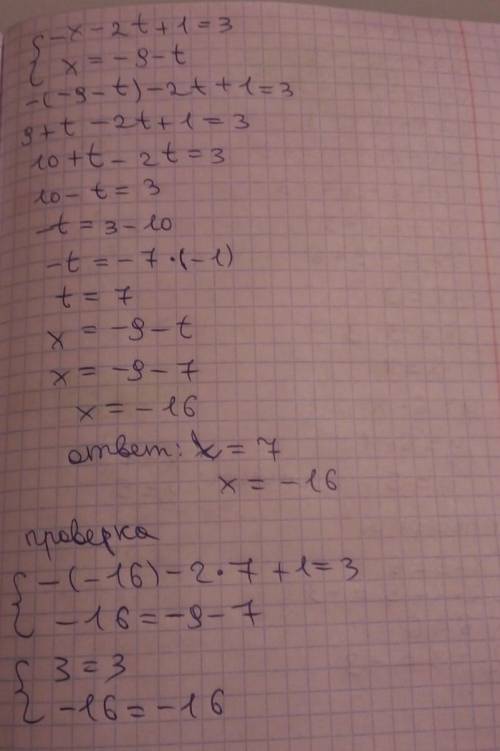 { -x-2t+1=3
x=-9-t
-(-9-t)-2t+1=3
9+t-2t+1=3
10+t-2t=3
10-t=3
-t=3-10
-t=-7·(-1)
t=7
x=-9-t
x=-9-7
x=-16
ответ: t=7
x=-16
проверка
{ -(-16)-2·7+1=3
-16=-9-7
{ 3=3
-16=-16